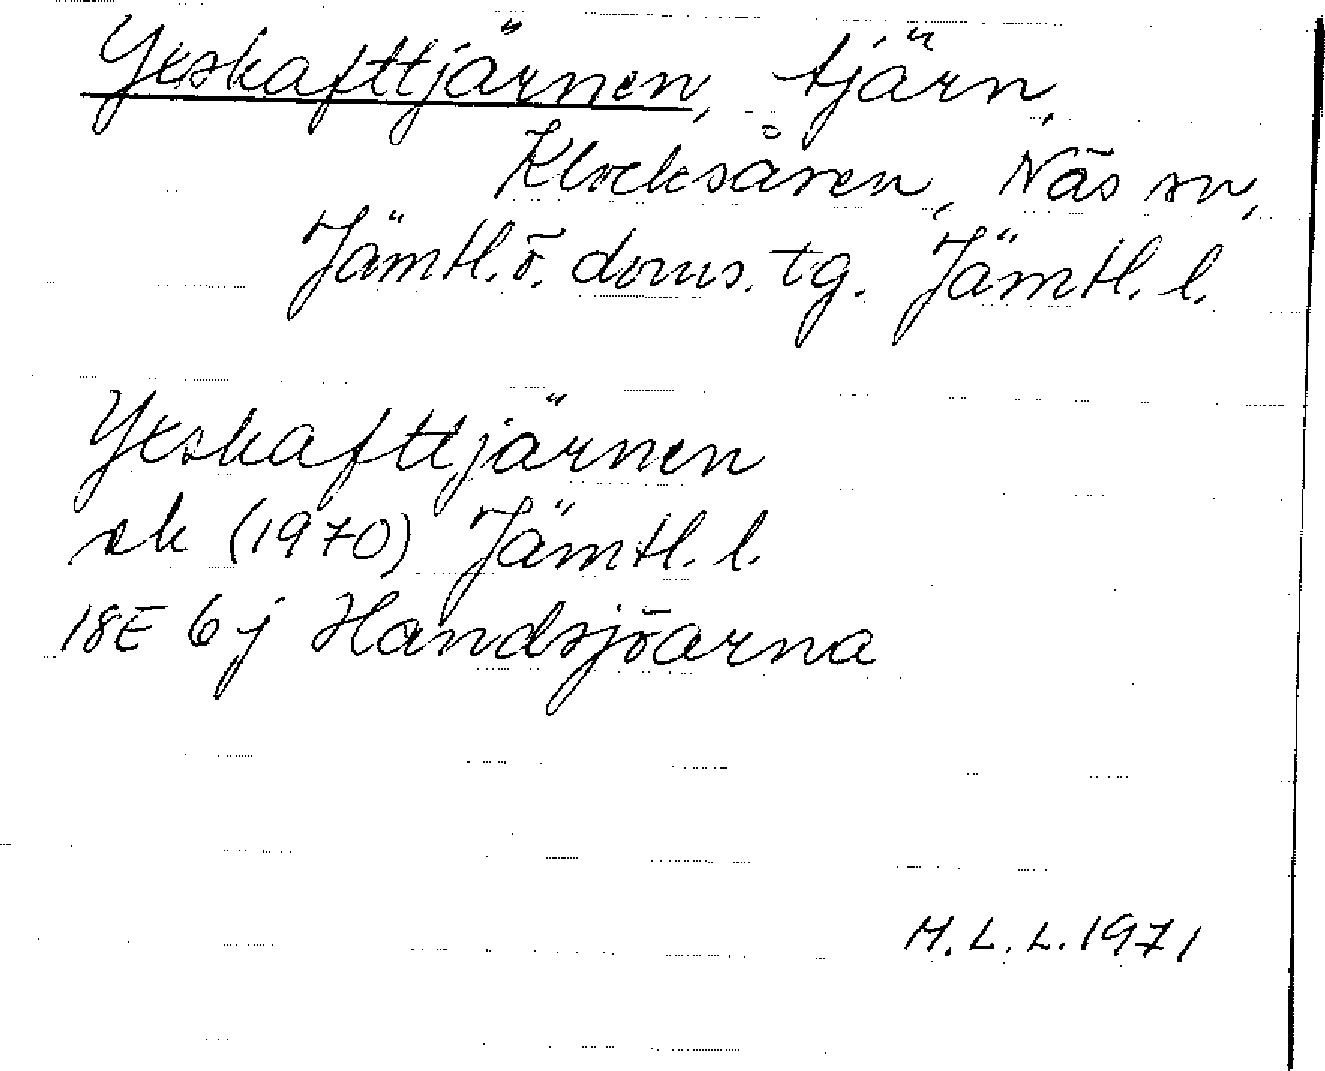 Yxskafttjärnen, tjärn,
Klocksåsen, Näs sn,
Jämtl. ö. doms. tg. Jämtl. l.
Yxskafttjärnen
ek (1970) Jämtl. l.
18E 6j Handsjöarna
H. L. L. 1971